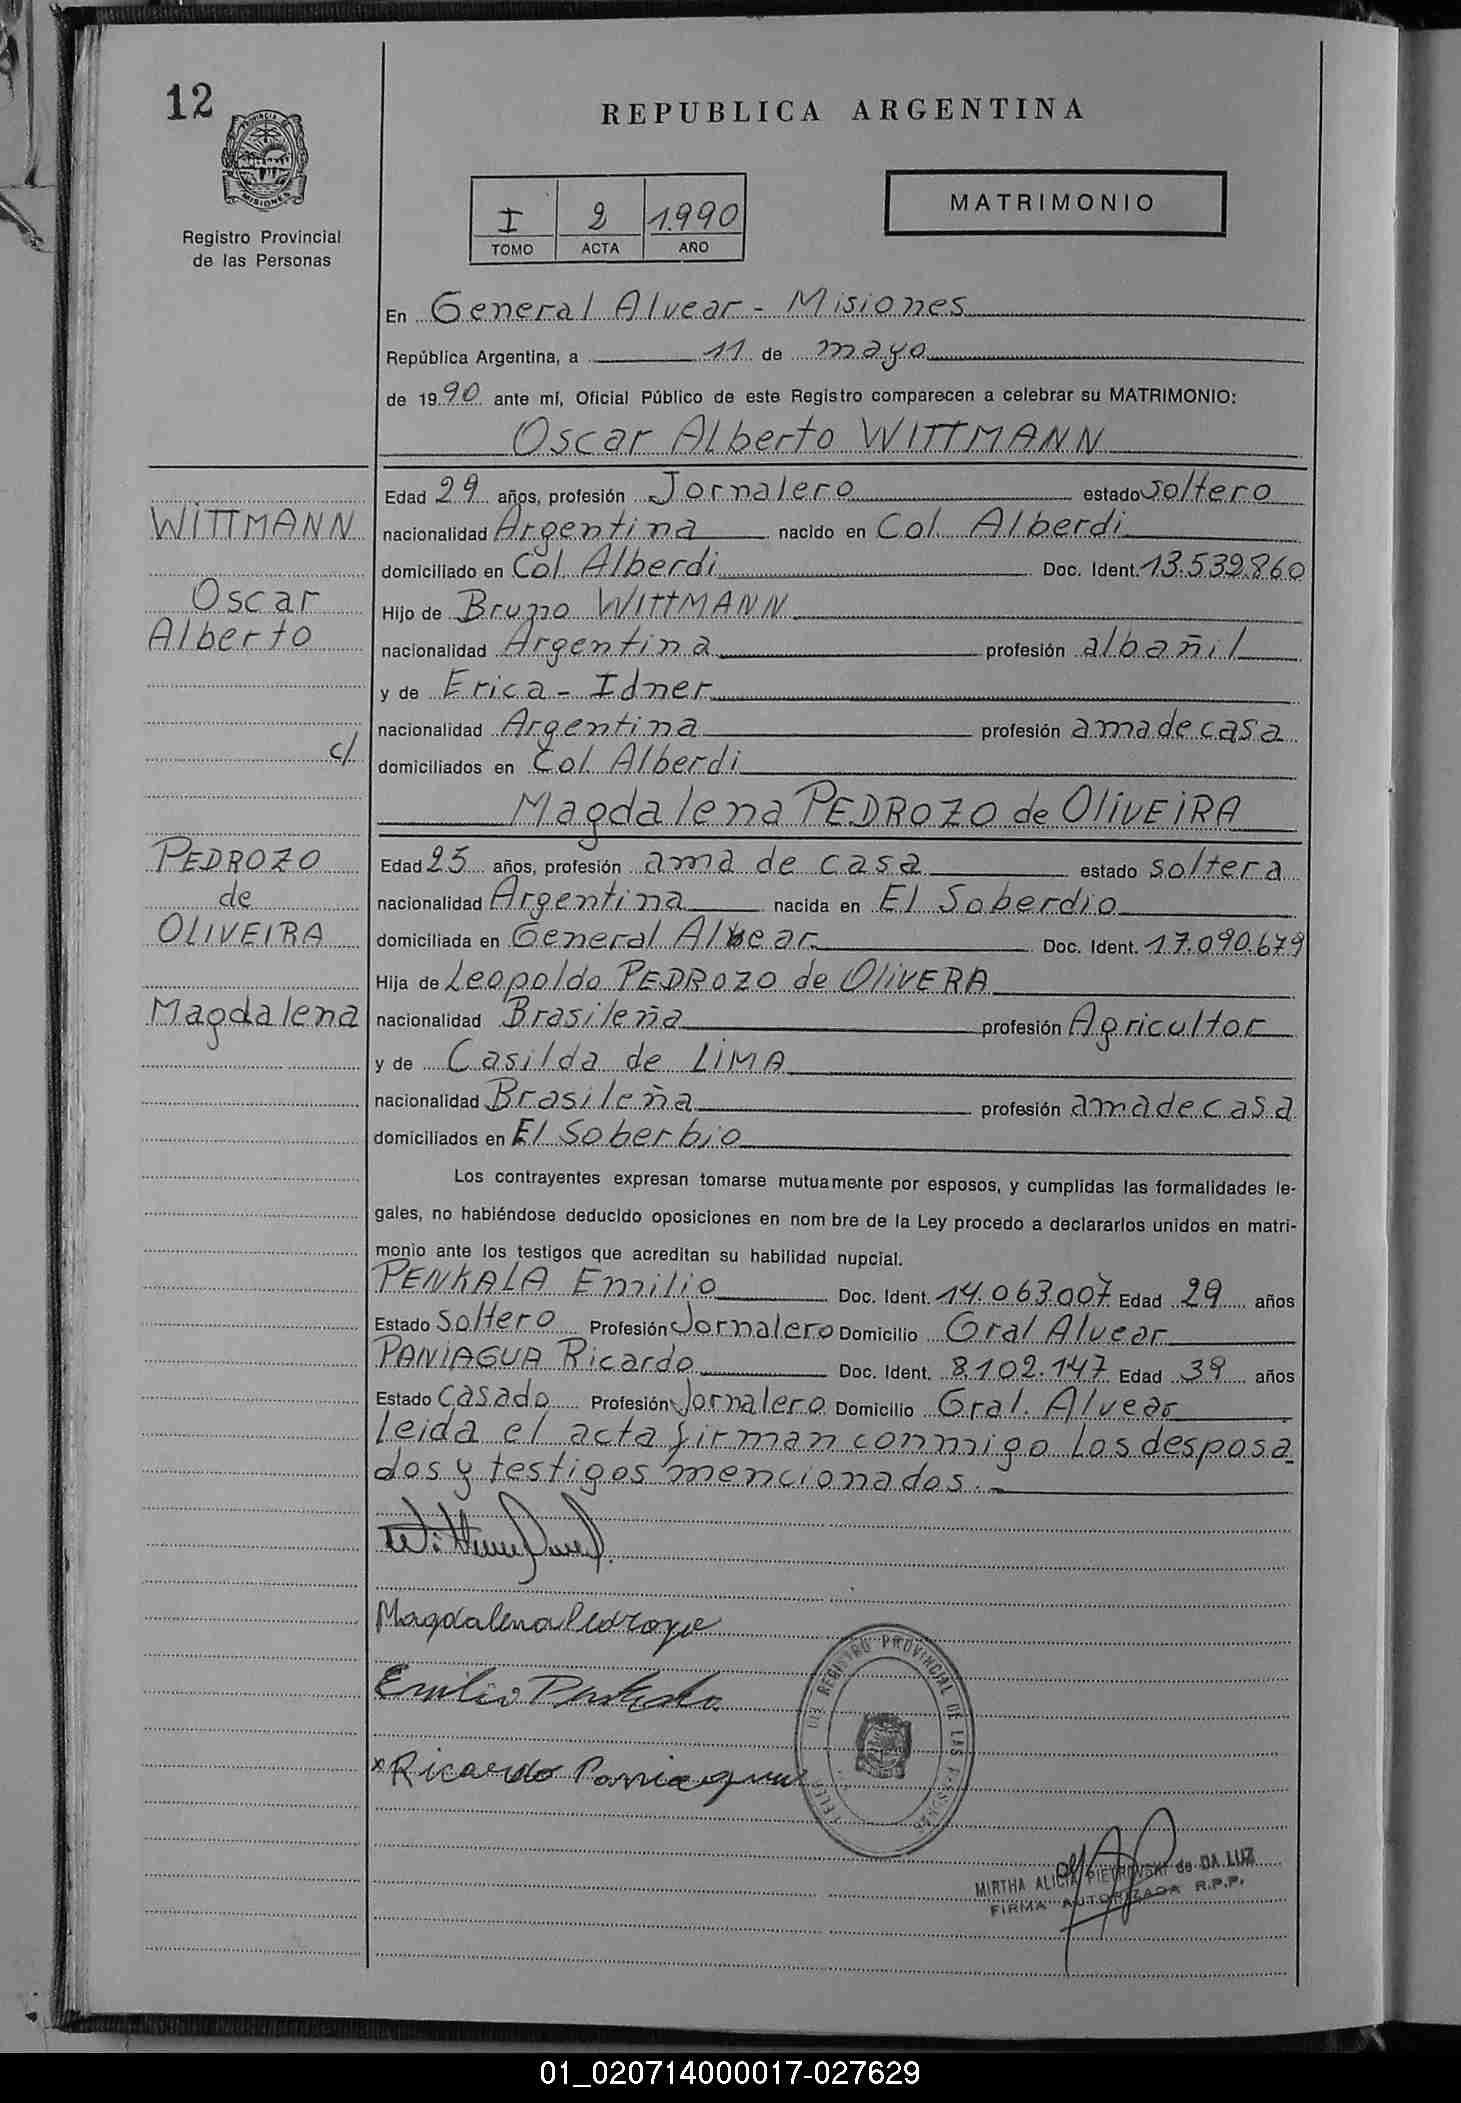 12
REPUBLICA ARGENTINA
PROVINCIA DE
MISIONES
Registro Provincial
de las Personas
I 2 1.990
TOMO ACTA AÑO
MATRIMONIO
En General Alvear - Misiones
República Argentina, a 11 de mayo
de 1990 ante mí, Oficial Público de este Registro comparecen a celebrar su MATRIMONIO:
Oscar Alberto WITTMANN
WITTMANN
Oscar
Alberto
c/
PEDROZO
de
OLIVEIRA
Magdalena
Edad 29 años, profesión Jornalero estado soltero
nacionalidad Argentina nacido en Col. Alberdi
domiciliado en Col. Alberdi Doc. Ident. 13.539.860
Hijo de Bruno WITTMANN
nacionalidad Argentina profesión albañil
y de Erica - Idner
nacionalidad Argentina profesión ama de casa
domiciliados en Col. Alberdi
Magdalena PEDROZO de OLIVEIRA
Edad 25 años, profesión ama de casa estado soltera
nacionalidad Argentina nacida en El Soberdio
domiciliada en General Alvear Doc. Ident. 17.090.679
Hija de Leopoldo PEDROZO de OLIVERA
nacionalidad Brasileña profesión Agricultor
y de Casilda de LIMA
nacionalidad Brasileña profesión ama de casa
domiciliados en El Soberbio
Los contrayentes expresan tomarse mutuamente por esposos, y cumplidas las formalidades le-
gales, no habiéndose deducido oposiciones en nom bre de la Ley procedo a declararlos unidos en matri-
monio ante los testigos que acreditan su habilidad nupcial.
PENKALA Emilio Doc. Ident. 14.063.007 Edad 29 años
Estado soltero Profesión Jornalero Domicilio Gral Alvear
PANIAGUA Ricardo Doc. Ident. 8.102.147 Edad 39 años
Estado casado Profesión Jornalero Domicilio Gral. Alvear
leida el acta firman conmigo los desposa
dos y testigos mencionados.
Magdalena Pedrozo
Emilio Penkala
x Ricardo Paniagua
DEL REGISTRO PROVINCIAL DE LAS PERSONAS
MIRTHA ALICIA PIETROVSKI de DA LUZ
FIRMA AUTORIZADA R.P.P.
01_020714000017-027629